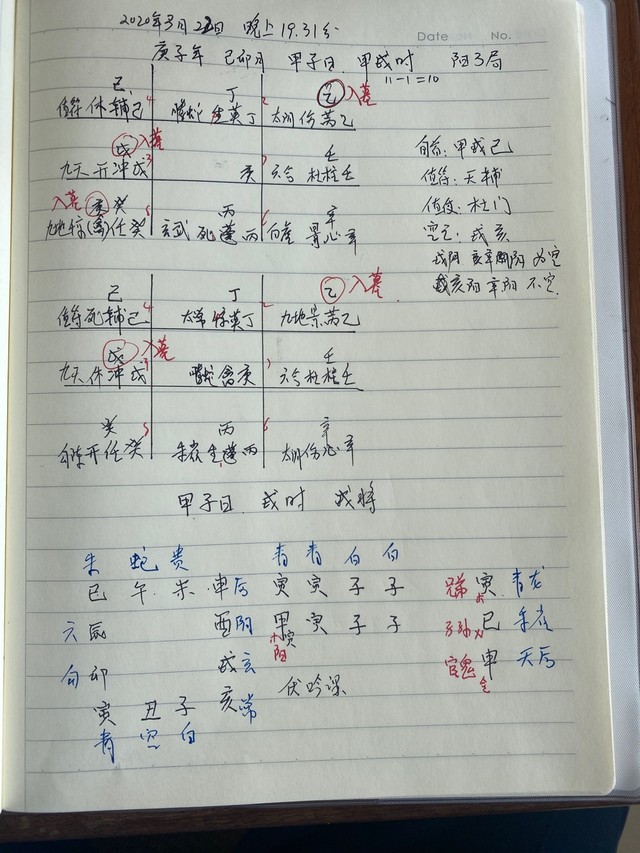 2020年3月22日 晚上 19.31分
Date No.
庚子年 己卯月 甲子日 甲戌时 阳3局
11-1=10
己 丁 乙 入墓
值符 休 辅 己 4 螣蛇 生 英 丁 太阴 伤 芮 乙 2
戊 入墓
九天 开 冲 戊 3 庚 六合 杜 柱 壬 7
壬
入墓 庚 癸 丙 辛
九地 惊 (禽) 任 癸 玄武 死 蓬 丙 白虎 景 心 辛 6
旬首:甲戌己
值符:天辅
值使:杜门
空亡:戌亥
戌阴 亥辛阴阴 为空
戌亥阳 辛阳 不空
己 丁 乙 入墓
值符 死 辅 己 4 太常 惊 英 丁 九地 景 芮 乙 2
戊 入墓 壬
九天 休 冲 戊 3 螣蛇 禽 庚 六合 杜 柱 壬 7
癸 丙 辛
勾陈 开 任 癸 朱雀 生 蓬 丙 1 太阴 伤 心 辛 6
甲子日 戌时 戌将
朱 蛇 贵 青 青 白 白
巳 午 未 申 后 寅 寅 子 子 兄弟 寅 木 青龙
六 辰 酉 阴 甲寅 寅 子 子 子孙 火 巳 朱雀
木阳
勾 卯 戌 玄 官鬼 申 金 天后
伏吟课
寅 丑 子 亥 常
青 空 白